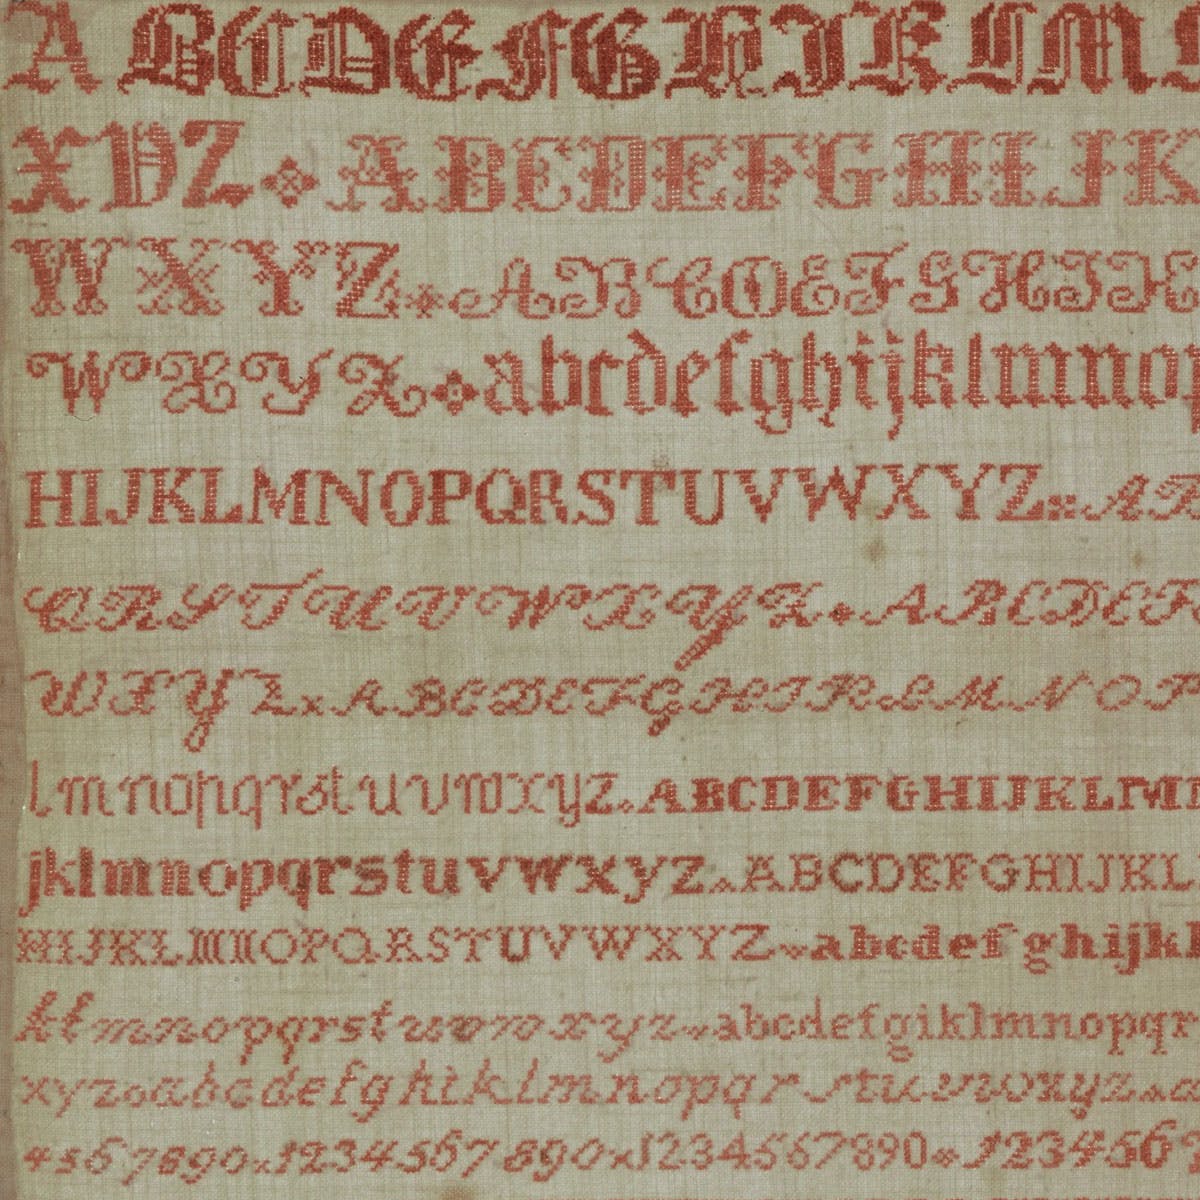 A B C D E F G H I K L M
X Y Z A B C D E F G H I J K
W X Y Z A B C D E F G H I K
W X Y Z a b c d e f g h i j k l m n o p
H I J K L M N O P Q R S T U V W X Y Z A B
Q R S T U V W X Y Z A B C D E F
W X Y Z x A B C D E F G H I K L M N O P
l m n o p q r s t u v w x y z . A B C D E F G H I J K L M
j k l m n o p q r s t u v w x y z A B C D E F G H I J K L
H I J K L M N O P Q R S T U V W X Y Z a b c d e f g h i j k l
k l m n o p q r s t u v w x y z a b c d e f g i k l m n o p q r
x y z o a b c d e f g h i k l m n o p q r s t u v w x y z a
4 5 6 7 8 9 0 x 1 2 3 4 5 6 7 8 9 0 x 1 2 3 4 5 6 7 8 9 0 1 2 3 4 5 6 7